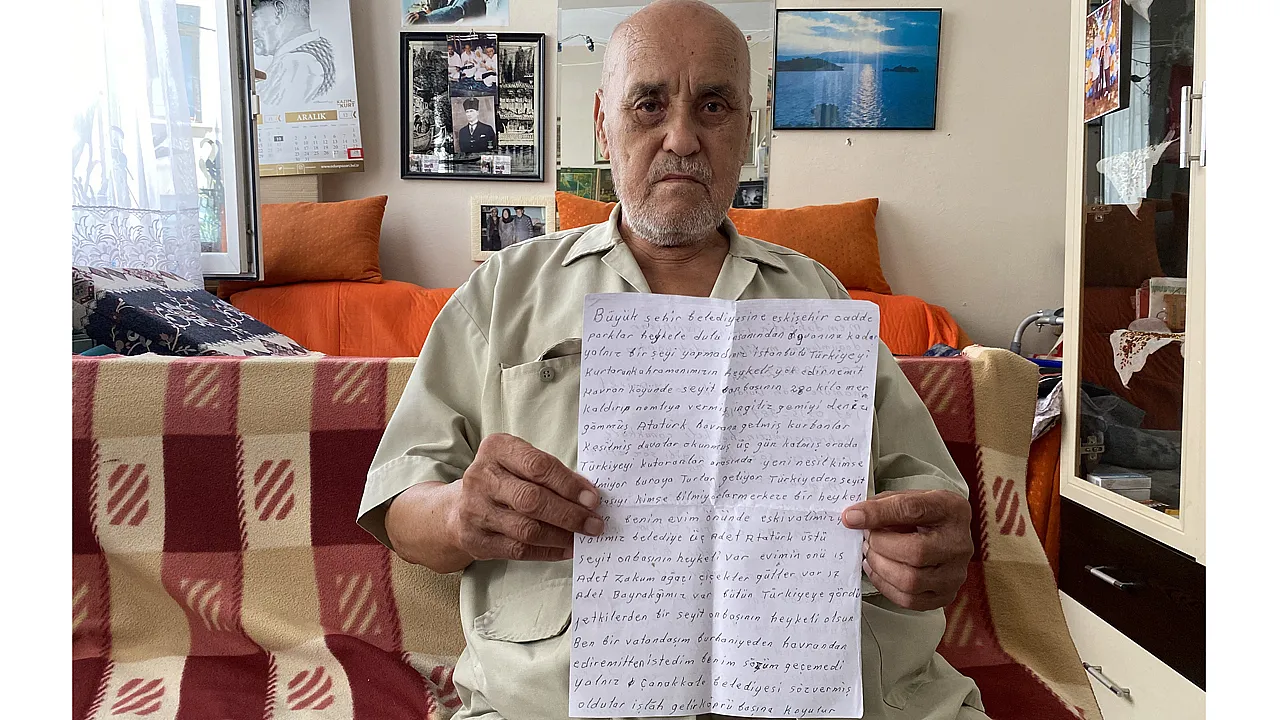 ARALIK
Büyük şehir belediyesine eskişehir cadde
parklar heykele dulu insanından hayvanına kadar
yalnız bir şeyi yapmadınız istanbulu Türkiyeyi
Kurtaran kahramanımızın heykeli yok edirinemit
Havran köyünde seyit onbaşının 280 kilo mer
kaldırıp namluya vermiş ingiliz gemiyi denize
gömmüş Atatürk havrana gelmiş kurbanlar
kesilmiş davalar okunmuş üç gün kalmış orada
Türkiyeyi kutoranlar arasında yeni nesil kimse
ilmiyor buraya Turlar geliyor Türkiyeden seyit
kimse bilmiyorlar merkeze bir heykel
benim evim önünde eski valimiz
valimiz belediye üç Adet Atatürk üstü
seyit onbaşının heykeli var evimin önü is
Adet Zakum ağacı çiçekler güller var iz
Adet Bayrağımız var bütün Türkiyeye gördü
yetkilerden bir seyit onbaşının heykeli olsun
Ben bir vatandaşım burhaniyeden havrandan
ediremitten istedim benim sözüm geçemedi
yalnız Çanakkale belediyesi söz vermiş
oldular köprü başına koyulur